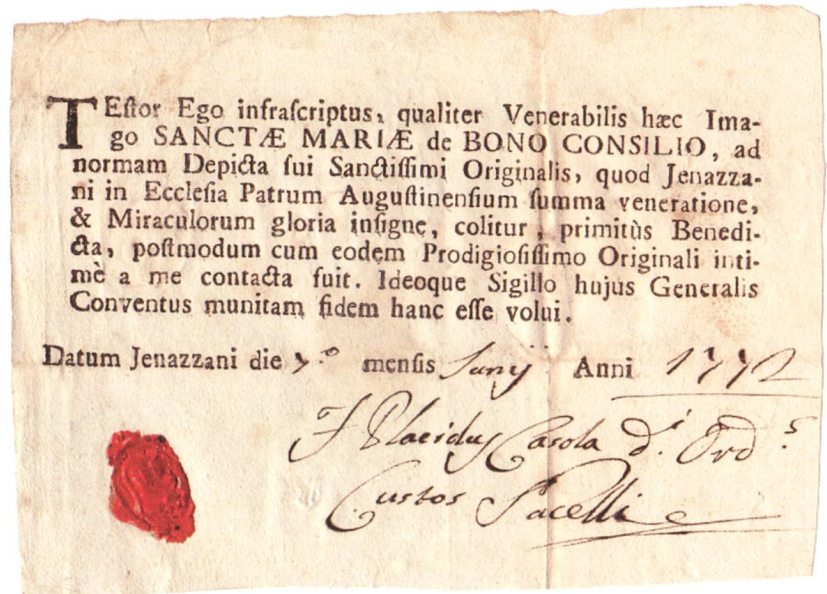 TEſtor Ego infraſcriptus, qualiter Venerabilis hæc Ima-
go SANCTÆ MARIÆ de BONO CONSILIO, ad
normam Depicta ſui Sanctiſſimi Originalis, quod Jenazza-
ni in Eccleſia Patrum Auguſtinenſium ſumma veneratione,
& Miraculorum gloria inſigne, colitur, primitùs Benedi-
cta, poſtmodum cum eodem Prodigioſiſſimo Originali inti-
mè a me contacta fuit. Ideoque Sigillo hujus Generalis
Conventus munitam fidem hanc eſſe volui.
Datum Jenazzani die 7.º menſis Junij Anni 1772
F Placidus Casola d.i Ord.s
Custos Sacelli